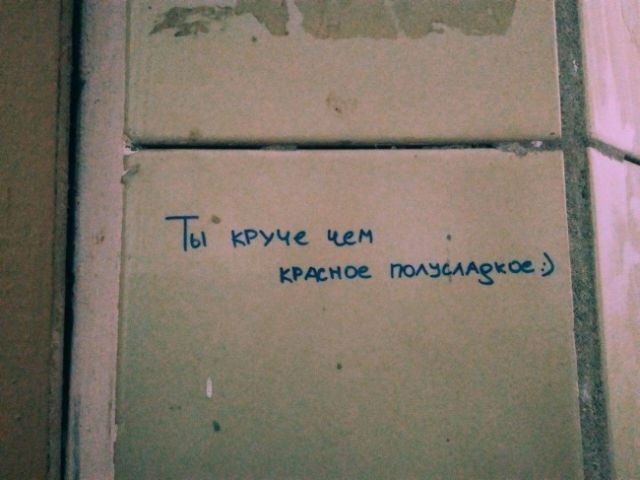 Ты круче чем
красное полусладкое:)